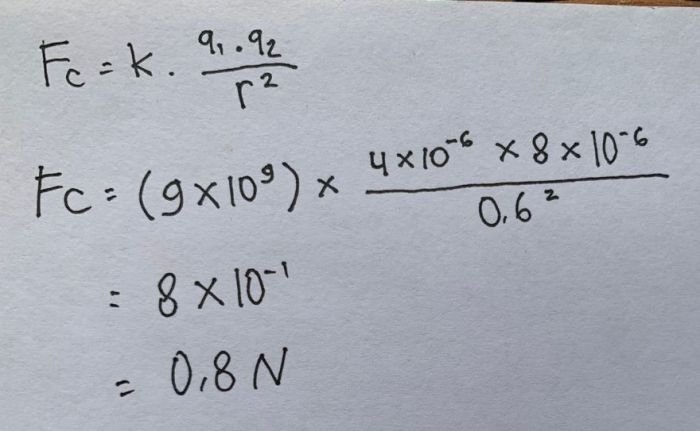 Fc = k . q₁ . q₂ / r²
Fc = (9 × 10⁹) × 4 × 10⁻⁶ × 8 × 10⁻⁶ / 0,6²
= 8 × 10⁻¹
= 0,8 N